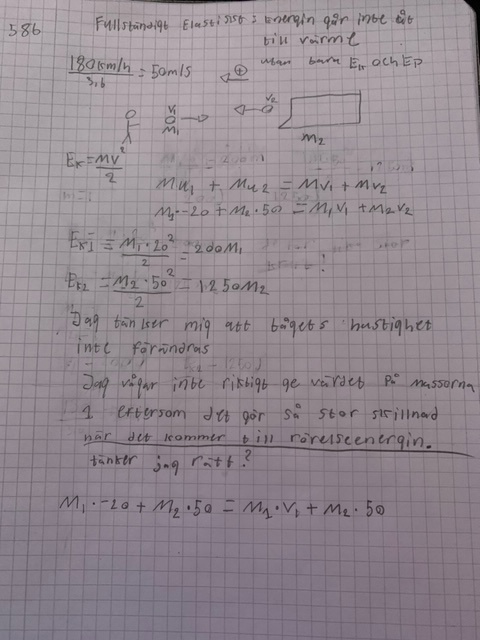 586 Fullständigt Elastiskt: Energin går inte åt
till värme
utan bara Ek och Ep
180km/h / 3,6 = 50m/s
V1
M1
V2
m2
Ek = mv² / 2
Mu1 + Mu2 = Mv1 + mv2
M1·-20 + M2·50 = M1V1 + M2V2
Ek1 = M1·20² / 2 = 200M1
Ek2 = M2·50² / 2 = 1250M2
Jag tänker mig att tågets hastighet
inte förändras
Jag vågar inte riktigt ge värdet på massorna
1 eftersom det gör så stor skillnad
när det kommer till rörelseenergin.
tänker jag rätt?
M1·-20 + M2·50 = M1·V1 + M2·50